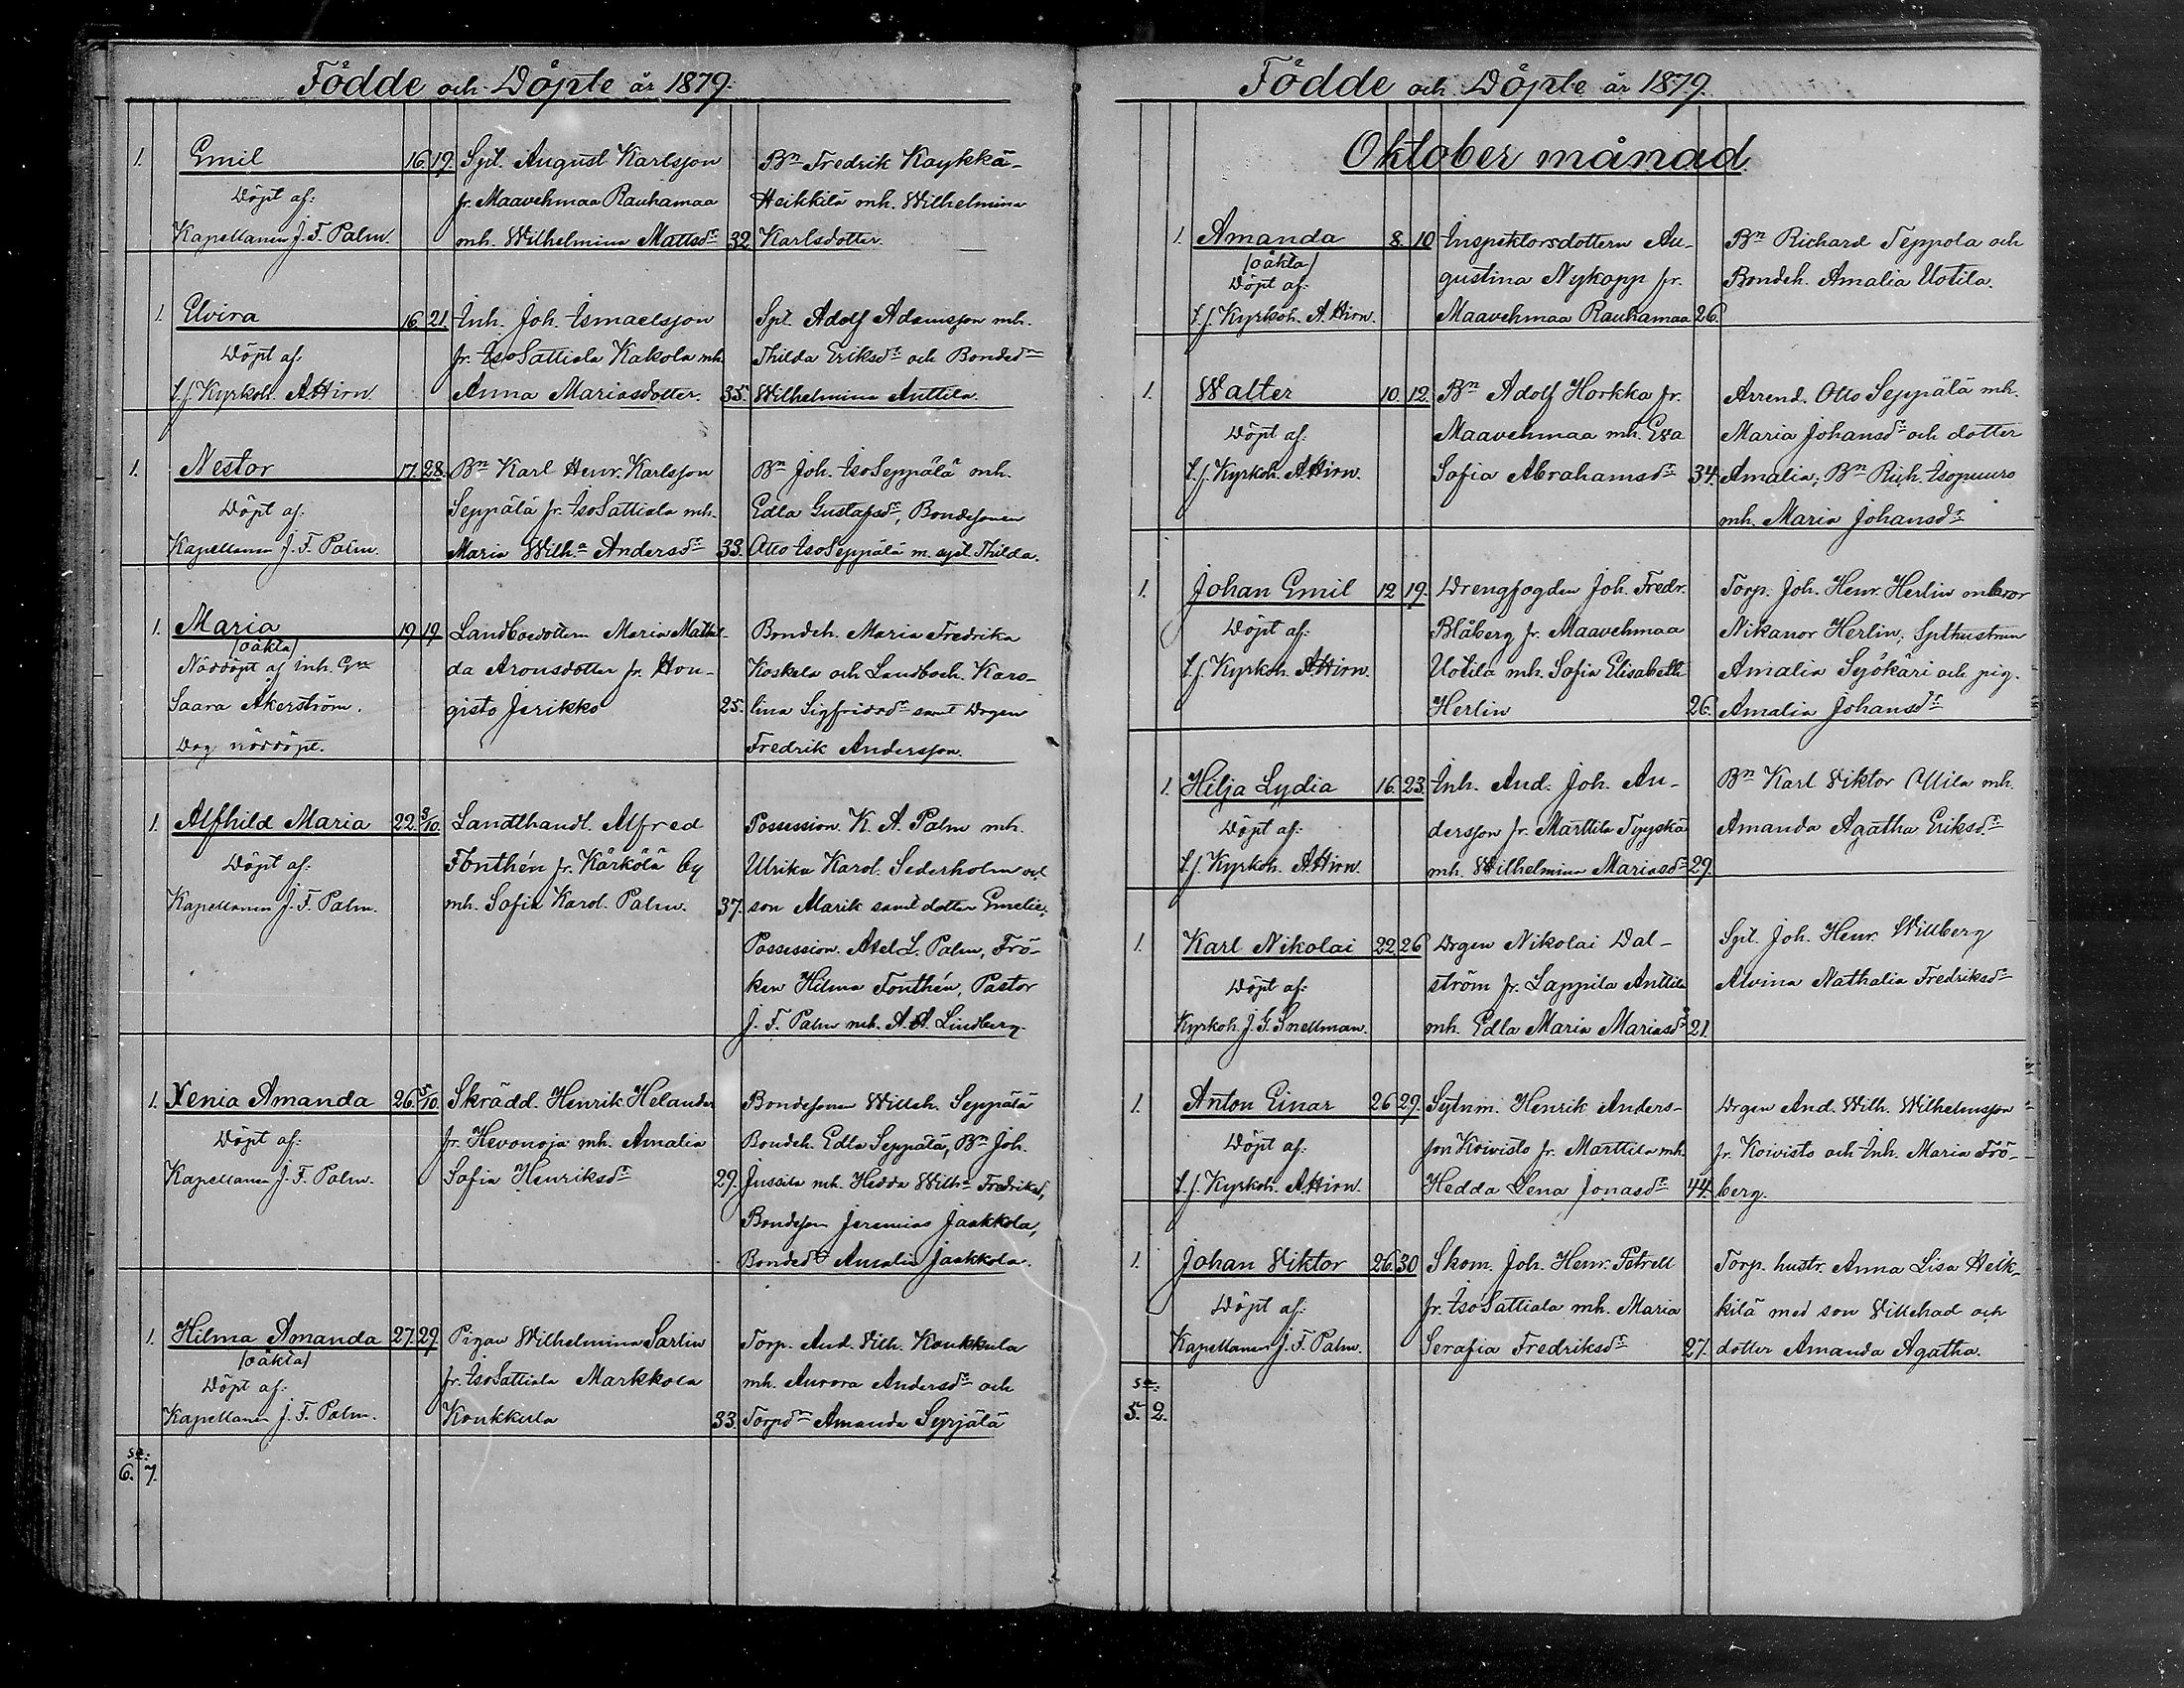 Födde och Döpte år 1879.
1. Emil 16. 19. Spt. August Karlsson Bn Fredrik Kaykkä-
Döpt af: fr. Maavehmaa Rauhamaa Heikkilä mh. Wilhelmina
Kapellanen J. F. Palm. mh. Wilhelmina Mattsdr 32 Karlsdotter.
1. Elvira 16. 21. Inh. Joh. Ismaelsson Spt. Adolf Adamsson mh.
Döpt af: fr. IsoSattiala Kakola mh. Thilda Eriksdr och Bonded
t.f. Kyrkoh. A Hirn Anna Mariasdotter. 35. Wilhelmina Anttila.
1. Nestor 17. 28. Bn Karl Henr. Karlsson Bn Joh. IsoSeppälä mh.
Döpt af: Seppälä fr. IsoSattiala mh. Edla Gustafsdr, Bondesonen
Kapellanen J. F. Palm. Maria Wilha Andersdr 33. Otto IsoSeppälä m. syst. Thilda.
1. Maria 19 19 Landboedottern Maria Mathil- Bondeh. Maria Fredrika
(oäkta)
Nöddöpt af Inh. da Aronsdotter fr. Hon- Koskela och Landboeh. Karo-
Saara Åkerström. gisto Jerikko 25. lina Sigfridsdr samt Drgen
Dog nöddöpt. Fredrik Andersson.
1. Alfhild Maria 22. 3/10. Landthandl. Alfred Possession. K. A. Palm mh.
Döpt af: Fonthén fr. Kärkölä by Ulrika Karol. Sederholm och
Kapellanen J. F. Palm. mh. Sofia Karol. Palm. 37. son Marik samt dotter Emelie,
Possession. Axel L. Palm, Frö-
ken Hilma Fonthén, Pastor
J. F. Palm mh. A. A. Lindberg.
1. Xenia Amanda 26. 5/10. Skrädd. Henrik Helander Bondesonen Willeh. Seppälä
Döpt af: fr. Hevonoja mh. Amalia Bondeh. Edla Seppälä, Bn Joh.
Kapellanen J. F. Palm. Sofia Henriksdr 29. Jussila mh. Hedda Wilha Fredriksd,
Bondeson Jeremias Jaakkola,
Bonded Amalia Jaakkola.
1. Hilma Amanda 27. 29. Pigan Wilhelmina Sarlin Torp. And. Vilh. Koukkula
(oäkta)
Döpt af: fr. IsoSattiala Markkola mh. Aurora Andersdr och
Kapellanen J. F. Palm. Koukkula 33. Torpdr Amanda Syrjälä
Sa:
6. 7.
Födde och Döpte år 1879.
Oktober månad.
1. Amanda 8. 10 Inspektorsdottern Au- Bn Richard Teppola och
(oäkta)
Döpt af: gustina Nykopp fr. Bondeh. Amalia Uotila.
t.f. Kyrkoh. A. Hirn. Maavehmaa Rauhamaa 26.
1. Walter 10. 12. Bn Adolf Horkka fr. Arrend. Otto Seppälä mh.
Döpt af: Maavehmaa mh. Eva Maria Johansdr och dotter
t.f. Kyrkoh. A Hirn. Sofia Abrahamsdr 34. Amalia; Bn Rich. Isopuuro
mh. Maria Johansdr
1. Johan Emil 12 19. Drengfogden Joh. Fredr. Torp. Joh. Henr. Herlin o. bror
Döpt af: Blåberg fr. Maavehmaa Nikanor Herlin, Spthustrun
t.f. Kyrkoh. A Hirn. Uotila mh. Sofia Elisabeth Amalia Syökäri och pig.
Herlin 26. Amalia Johansdr
1. Hilja Lydia 16. 23. Inh. And. Joh. An- Bn Karl Viktor Ylila mh.
Döpt af: dersson fr. Marttila Tyyskä Amanda Agatha Eriksdr
t.f. Kyrkoh. A Hirn. mh. Wilhelmina Mariasdr 29.
1. Karl Nikolai 22 26 Drgen Nikolai Dal- Spt. Joh. Henr. Willberg
Döpt af: ström fr. Lappila Anttila Alvina Nathalia Fredriksdr
Kyrkoh. J. G. Snellman. mh. Edla Maria Mariasdr 21.
1. Anton Einar 26 29. Sytnm. Henrik Anders- Drgen And. Wilh. Wilhelmsson
Döpt af: son Koivisto fr. Marttila mh. fr. Koivisto och Inh. Maria Frö-
t.f. Kyrkoh. A Hirn. Hedda Lena Jonasdr 44. berg.
1. Johan Viktor 26. 30 Skom. Joh. Henr. Petrell Torp. hustr. Anna Lisa Heik-
Döpt af: fr. IsoSattiala mh. Maria kilä med son Willehad och
Kapellanen J. F. Palm. Serafia Fredriksdr 27. dotter Amanda Agatha.
Sa:
5. 2.